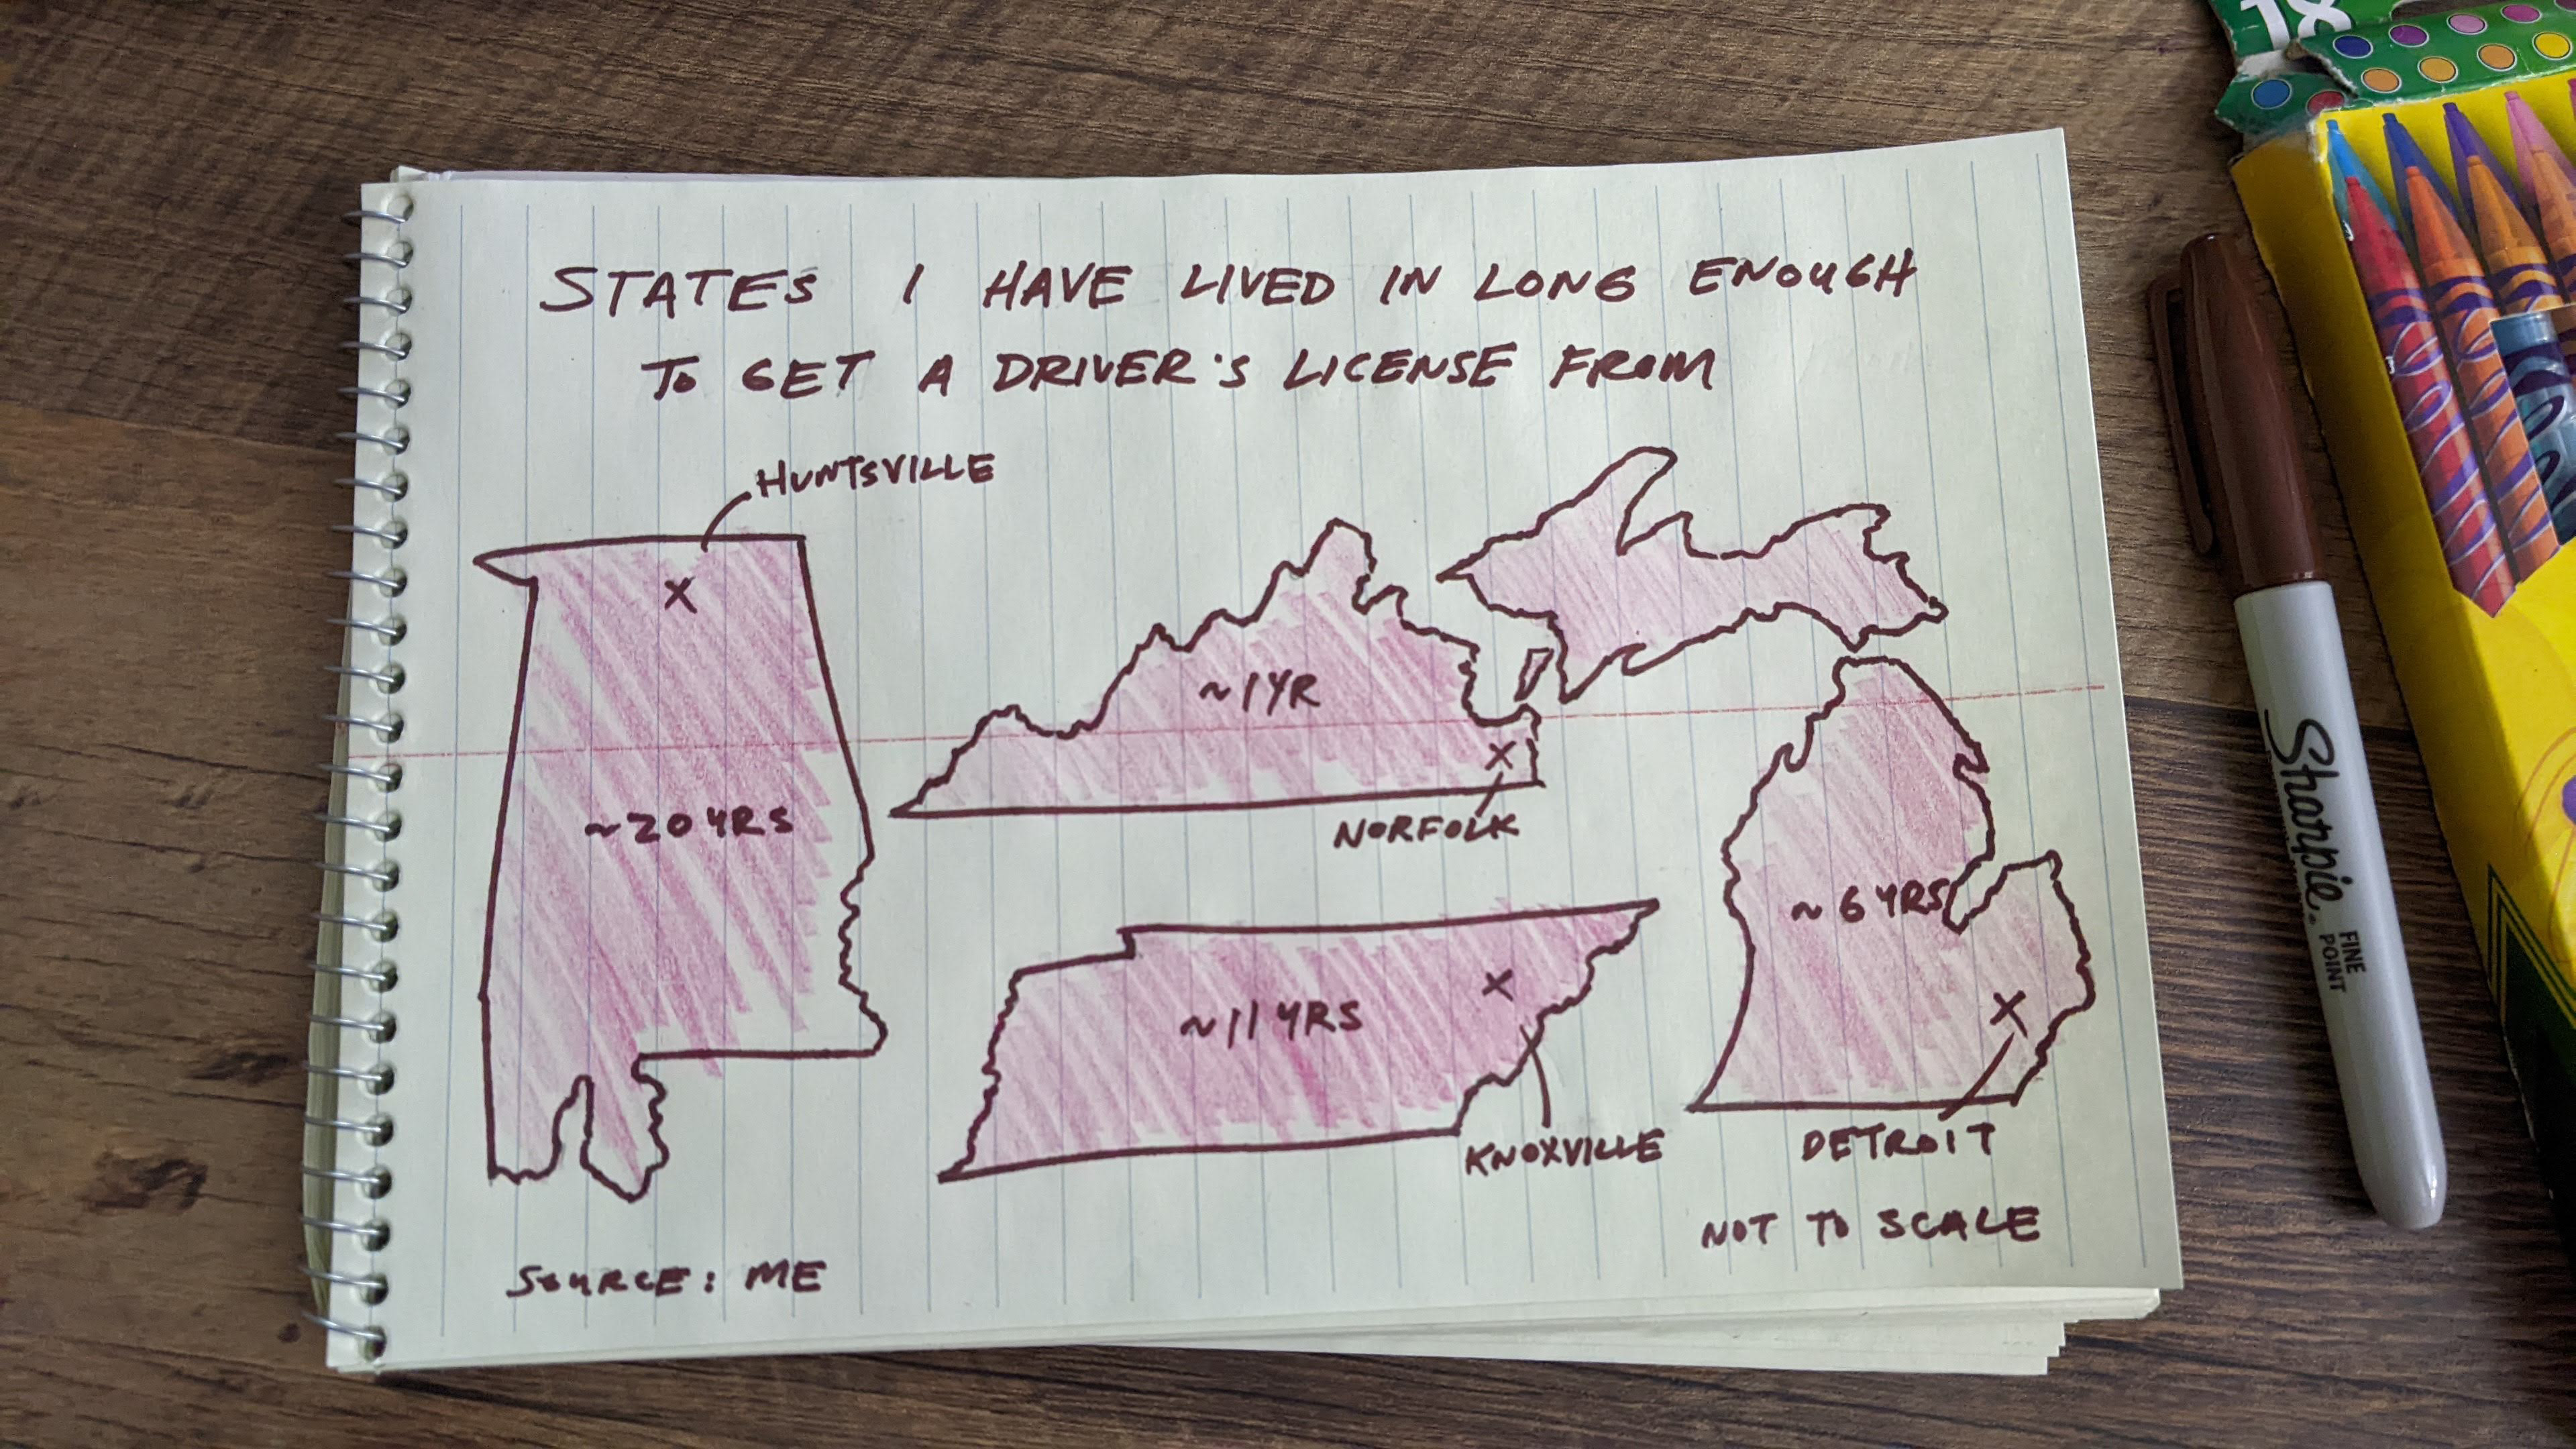 STATES I HAVE LIVED IN LONG ENOUGH
TO GET A DRIVER'S LICENSE FROM
HUNTSVILLE
X
~20 YRS
~1 YR
X
NORFOLK
~11 YRS
X
KNOXVILLE
~6 YRS
X
DETROIT
NOT TO SCALE
SOURCE: ME
18
Sharpie.
FINE
POINT